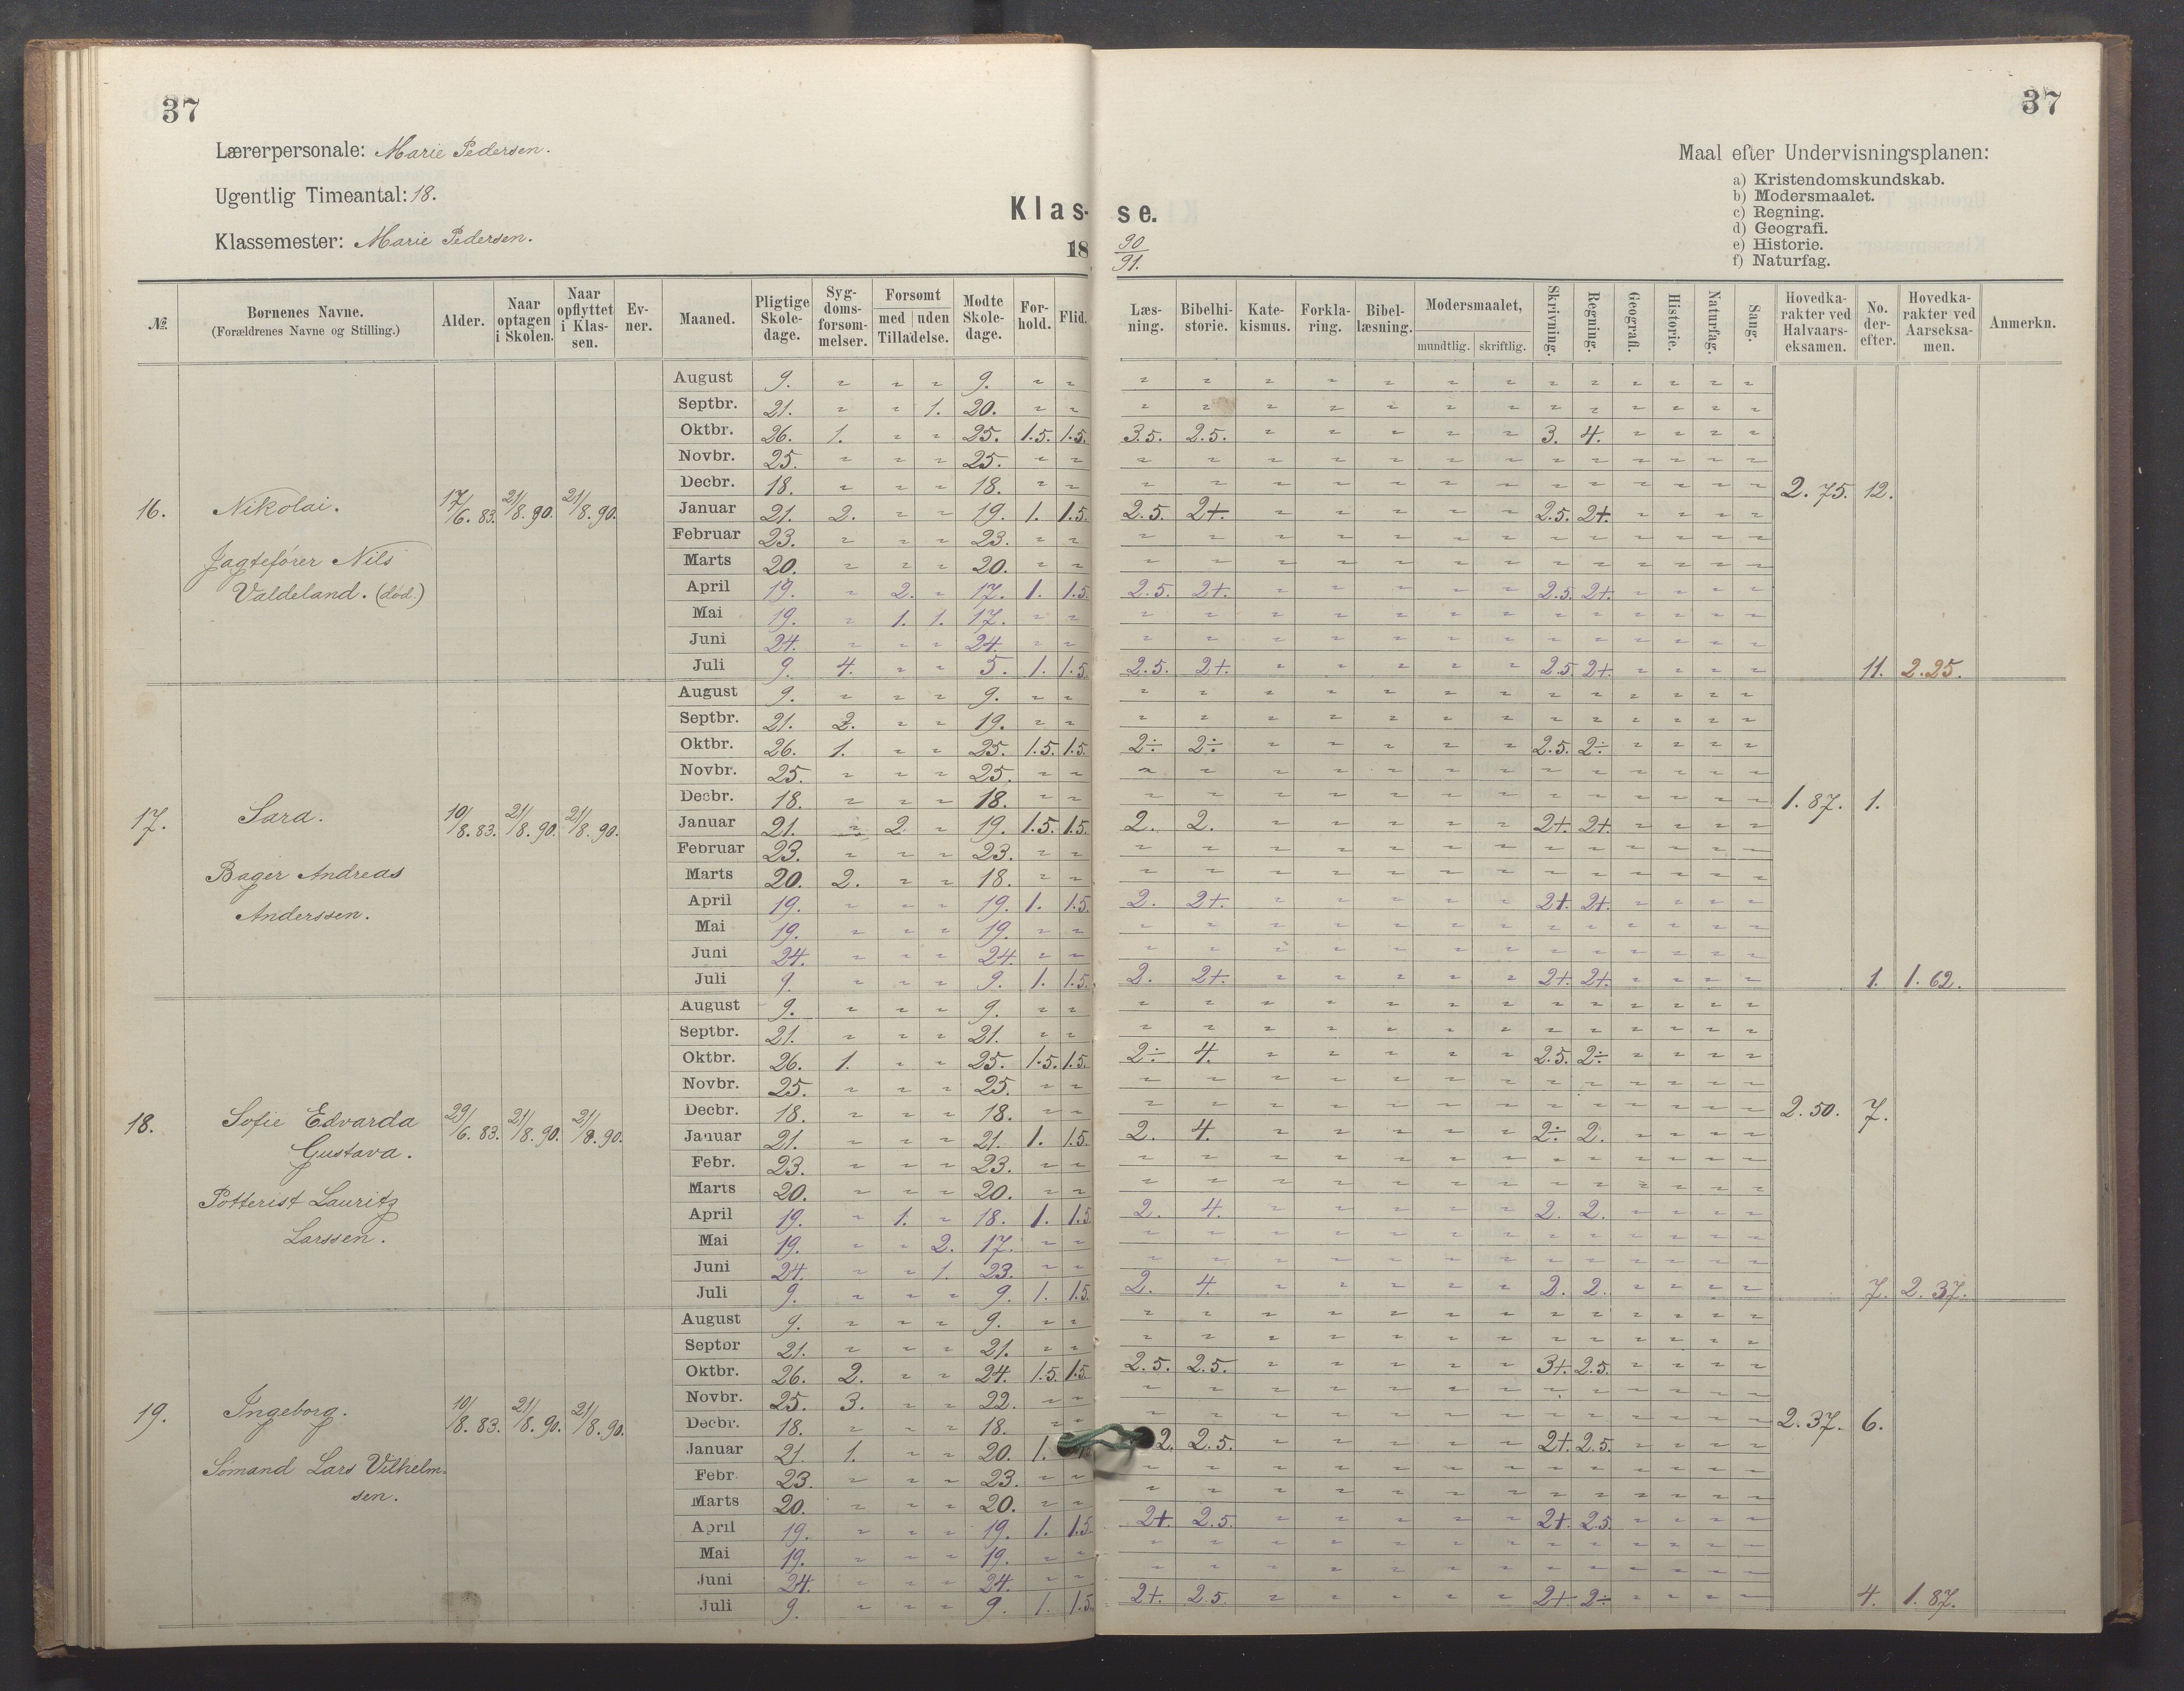 37
37
Lærerpersonale: Marie Pedersen.
Ugentlig Timeantal: 18.
Klassemester: Marie Pedersen.
Klas-se.
18 90/91.
Maal efter Undervisningsplanen:
a) Kristendomskundskab.
b) Modersmaalet.
c) Regning.
d) Geografi.
e) Historie.
f) Naturfag.
№ | Børnenes Navne. (Forældrenes Navne og Stilling.) | Alder. | Naar optagen i Skolen. | Naar opflyttet i Klassen. | Evner. | Maaned. | Pligtige Skoledage. | Sygdomsforsømmelser. | Forsømt med uden Tilladelse. | Mødte Skoledage. | Forhold. | Flid. | Læsning. | Bibelhistorie. | Katekismus. | Forklaring. | Bibellæsning. | Modersmaalet, mundtlig. skriftlig. | Skrivning. | Regning. | Geografi. | Historie. | Naturfag. | Sang. | Hovedkarakter ved Halvaarseksamen. | No. derefter. | Hovedkarakter ved Aarseksamen. | Anmerkn.
16. Nikolai. 17/6. 83. 21/8. 90. 21/8. 90.
Jagtefører Nils
Valdeland. (død.)
August 9. " " " 9. " " " " " " " " " " " " " " "
Septbr. 21. " " 1. 20. " " " " " " " " " " " " " " "
Oktbr. 26. 1. " " 25. 1.5. 1.5. 3.5. 2.5. " " " " " 3. 4. " " " "
Novbr. 25. " " " 25. " " " " " " " " " " " " " " "
Decbr. 18. " " " 18. " " " " " " " " " " " " " " " 2.75. 12.
Januar 21. 2. " " 19. 1. 1.5. 2.5. 2+. " " " " " 2.5. 2+. " " " "
Februar 23. " " " 23. " " " " " " " " " " " " " " "
Marts 20. " " " 20. " " " " " " " " " " " " " " "
April 19. " 2. " 17. 1. 1.5. 2.5. 2+. " " " " " 2.5. 2+. " " " "
Mai 19. " 1. 1. 17. " " " " " " " " " " " " " " "
Juni 24. " " " 24. " " " " " " " " " " " " " " "
Juli 9. 4. " " 5. 1. 1.5. 2.5. 2+. " " " " " 2.5. 2+. " " " " 11. 2.25.
17. Sara. 10/8. 83. 21/8. 90. 21/8. 90.
Bager Andreas
Anderssen.
August 9. " " " 9. " " " " " " " " " " " " " " "
Septbr. 21. 2. " " 19. " " " " " " " " " " " " " " "
Oktbr. 26. 1. " " 25. 1.5. 1.5. 2÷ 2÷ " " " " " 2.5. 2÷ " " " "
Novbr. 25. " " " 25. " " " " " " " " " " " " " " "
Decbr. 18. " " " 18. " " " " " " " " " " " " " " " 1.87. 1.
Januar 21. " 2. " 19. 1.5. 1.5. 2. 2. " " " " " 2+. 2+. " " " "
Februar 23. " " " 23. " " " " " " " " " " " " " " "
Marts 20. 2. " " 18. " " " " " " " " " " " " " " "
April 19. " " " 19. 1. 1.5. 2. 2+. " " " " " 2+. 2+. " " " "
Mai 19. " " " 19. " " " " " " " " " " " " " " "
Juni 24. " " " 24. " " " " " " " " " " " " " " "
Juli 9. " " " 9. 1. 1.5. 2. 2+. " " " " " 2+. 2+. " " " " 1. 1.62.
18. Sofie Edvarda 29/6. 83. 21/8. 90. 21/8. 90.
Gustava.
Potterist Lauritz
Larssen.
August 9. " " " 9. " " " " " " " " " " " " " " "
Septbr. 21. " " " 21. " " " " " " " " " " " " " " "
Oktbr. 26. 1. " " 25. 1.5. 1.5. 2÷ 4. " " " " " 2.5. 2÷ " " " "
Novbr. 25. " " " 25. " " " " " " " " " " " " " " "
Decbr. 18. " " " 18. " " " " " " " " " " " " " " " 2.50. 7.
Januar 21. " " " 21. 1. 1.5. 2. 4. " " " " " 2÷ 2. " " " "
Febr. 23. " " " 23. " " " " " " " " " " " " " " "
Marts 20. " " " 20. " " " " " " " " " " " " " " "
April 19. " 1. " 18. 1. 1.5 2. 4. " " " " " 2. 2. " " " "
Mai 19. " " 2. 17. " " " " " " " " " " " " " " "
Juni 24. " " 1. 23. " " " " " " " " " " " " " " "
Juli 9. " " " 9. 1. 1.5. 2. 4. " " " " " 2. 2. " " " " 7. 2.37.
19. Ingeborg. 10/8. 83. 21/8. 90. 21/8. 90.
Sömand Lars Vilhelm-
sen.
August 9. " " " 9. " " " " " " " " " " " " " " "
Septbr 21. " " " 21. " " " " " " " " " " " " " " "
Oktbr. 26. 2. " " 24. 1.5. 1.5. 2.5. 2.5. " " " " " 3+. 2.5. " " " "
Novbr. 25. 3. " " 22. " " " " " " " " " " " " " " "
Decbr. 18. " " " 18. " " " " " " " " " " " " " " " 2.37. 6.
Januar 21. 1. " " 20. 1. 2. 2.5. " " " " " 2+. 2.5. " " " "
Febr. 23. " " " 23. " " " " " " " " " " " " " " "
Marts 20. " " " 20. " " " " " " " " " " " " " " "
April 19. " " " 19. 1. 1.5. 2+. 2.5. " " " " " 2+. 2.5. " " " "
Mai 19. " " " 19. " " " " " " " " " " " " " " "
Juni 24. " " " 24. " " " " " " " " " " " " " " "
Juli 9. " " " 9. 1. 1.5. 2+. 2.5. " " " " " 2+. 2÷ " " " " 4. 1.87.